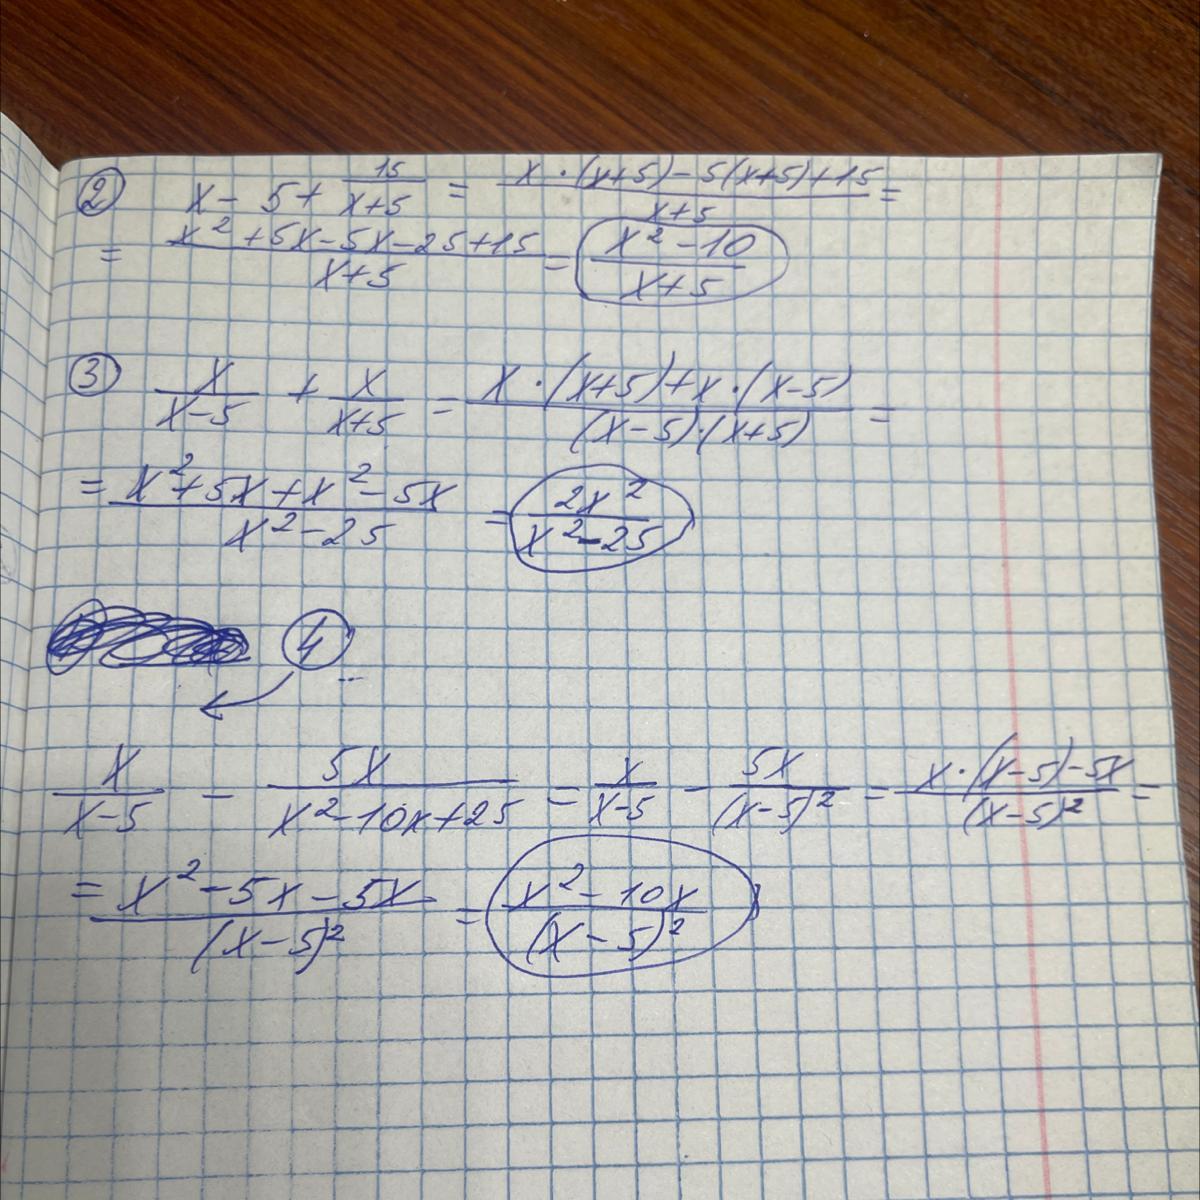 ② x - 5 + 15/(x+5) = (x · (x+5) - 5(x+5) + 15)/(x+5) =
= (x² + 5x - 5x - 25 + 15)/(x+5) = (x² - 10)/(x+5)
③ x/(x-5) + x/(x+5) = (x · (x+5) + x · (x-5))/((x-5) · (x+5)) =
= (x² + 5x + x² - 5x)/(x² - 25) = 2x²/(x² - 25)
④
x/(x-5) - 5x/(x² - 10x + 25) = x/(x-5) - 5x/(x-5)² = (x · (x-5) - 5x)/(x-5)² =
= (x² - 5x - 5x)/(x-5)² = (x² - 10x)/(x-5)²